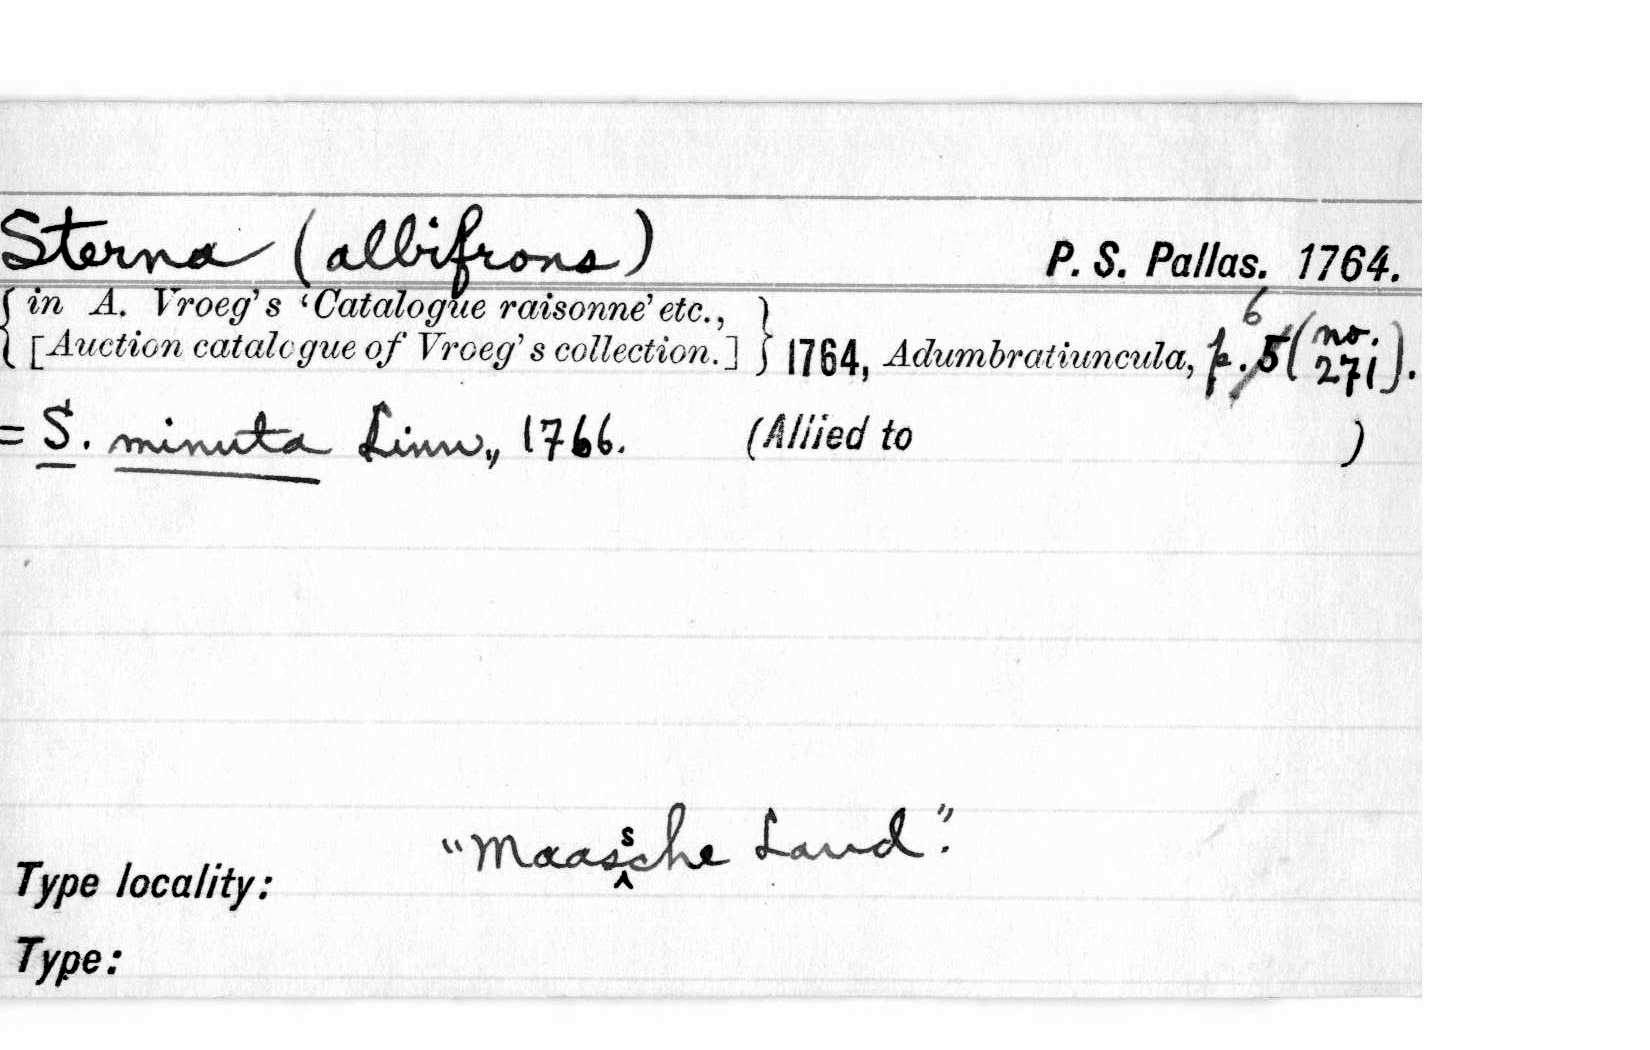 Sterna (albifrons) P. S. Pallas. 1764.
{ in A. Vroeg's 'Catalogue raisonne' etc., }
{ [Auction catalogue of Vroeg's collection.] } 1764, Adumbratiuncula, p. 5 6 (no. 271).
= S. minuta Linn., 1766. (Allied to )
"Maassche Land".
Type locality:
Type: